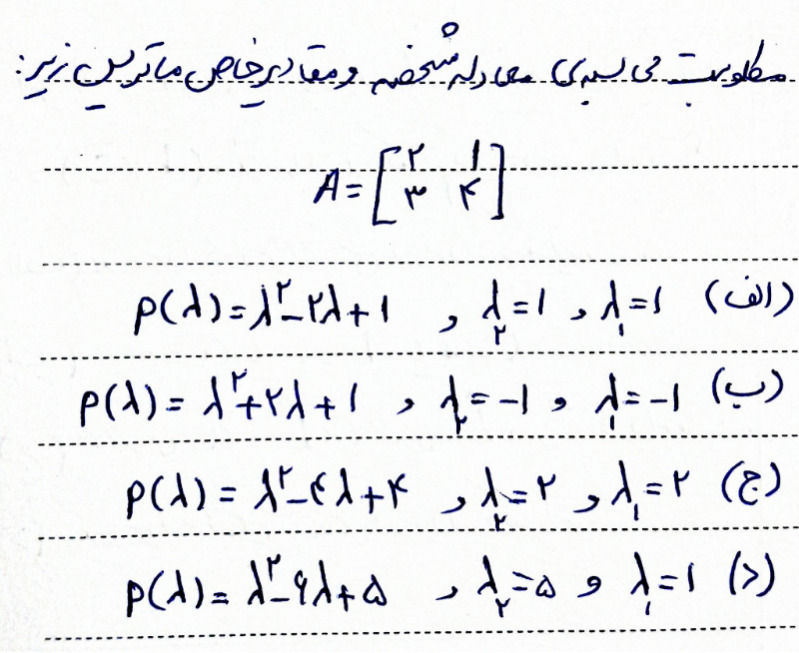 مطلوبست محاسبه‌ی معادله مشخصه و مقادیر خاص ماتریس زیر:
A = [۲ ۱
۳ ۴]
الف) λ₁=۱ و λ₂=۱ و P(λ)=λ²-۲λ+۱
ب) λ₁=-۱ و λ₂=-۱ و P(λ)=λ²+۲λ+۱
ج) λ₁=۲ و λ₂=۲ و P(λ)=λ²-۴λ+۴
د) λ₁=۱ و λ₂=۵ و P(λ)=λ²-۶λ+۵